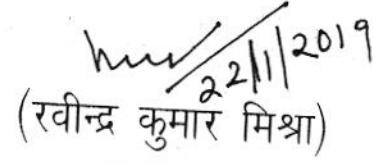 22/1/2019
(रवीन्द्र कुमार मिश्रा)